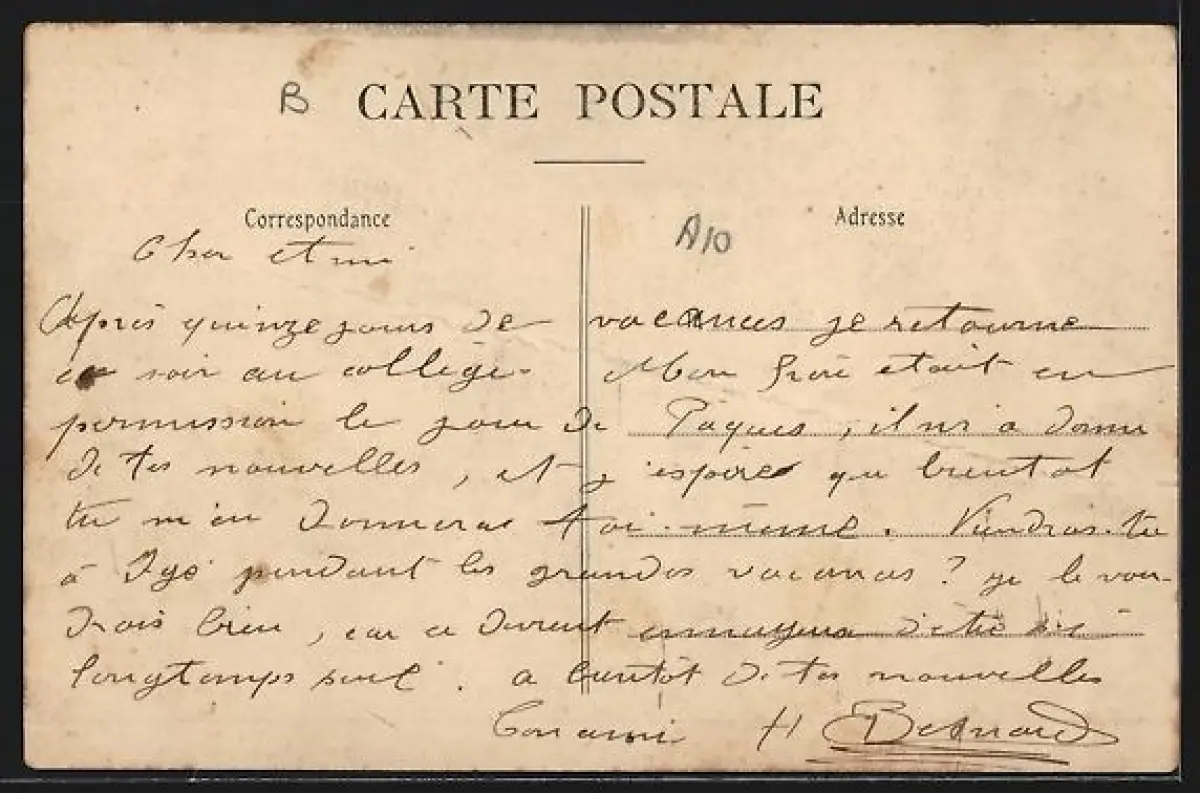 B CARTE POSTALE
Correspondance
Adresse
A10
Cher ami
Après quinze jours de vacances je retourne
ce soir au collège. Mon frère était en
permission le jour de Pâques, il m'a donné
de tes nouvelles, et j'espère que bientot
tu m'en donneras toi-même. Viendras-tu
à Igé pendant les grandes vacances ? je le vou-
drais bien, car ce devient ennuyeux d'etre si
longtemps seul. a bientôt de tes nouvelles
Ton ami H Besnard